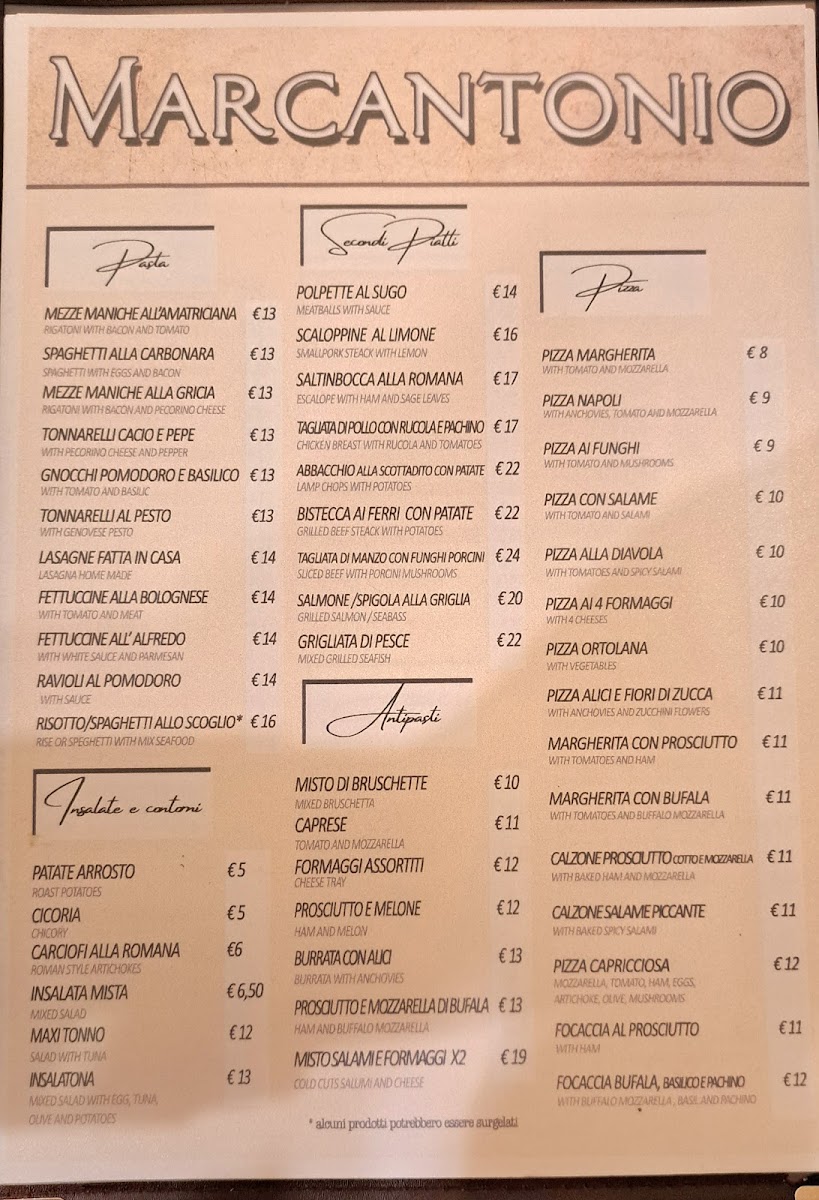 MARCANTONIO
Pasta
MEZZE MANICHE ALL'AMATRICIANA €13
RIGATONI WITH BACON AND TOMATO
SPAGHETTI ALLA CARBONARA €13
SPAGHETTI WITH EGGS AND BACON
MEZZE MANICHE ALLA GRICIA €13
RIGATONI WITH BACON AND PECORINO CHEESE
TONNARELLI CACIO E PEPE €13
WITH PECORINO CHEESE AND PEPPER
GNOCCHI POMODORO E BASILICO €13
WITH TOMATO AND BASILIC
TONNARELLI AL PESTO €13
WITH GENOVESE PESTO
LASAGNE FATTA IN CASA €14
LASAGNA HOME MADE
FETTUCCINE ALLA BOLOGNESE €14
WITH TOMATO AND MEAT
FETTUCCINE ALL'ALFREDO €14
WITH WHITE SAUCE AND PARMESAN
RAVIOLI AL POMODORO €14
WITH SAUCE
RISOTTO/SPAGHETTI ALLO SCOGLIO* €16
RISE OR SPEGHETTI WITH MIX SEAFOOD
Insalate e contorni
PATATE ARROSTO €5
ROAST POTATOES
CICORIA €5
CHICORY
CARCIOFI ALLA ROMANA €6
ROMAN STYLE ARTICHOKES
INSALATA MISTA €6,50
MIXED SALAD
MAXI TONNO €12
SALAD WITH TUNA
INSALATONA €13
MIXED SALAD WITH EGG, TUNA,
OLIVE AND POTATOES
Secondi Piatti
POLPETTE AL SUGO €14
MEATBALLS WITH SAUCE
SCALOPPINE AL LIMONE €16
SMALLPORK STEACK WITH LEMON
SALTINBOCCA ALLA ROMANA €17
ESCALOPE WITH HAM AND SAGE LEAVES
TAGLIATA DI POLLO CON RUCOLA E PACHINO €17
CHICKEN BREAST WITH RUCOLA AND TOMATOES
ABBACCHIO ALLA SCOTTADITO CON PATATE €22
LAMP CHOPS WITH POTATOES
BISTECCA AI FERRI CON PATATE €22
GRILLED BEEF STEACK WITH POTATOES
TAGLIATA DI MANZO CON FUNGHI PORCINI €24
SLICED BEEF WITH PORCINI MUSHROOMS
SALMONE /SPIGOLA ALLA GRIGLIA €20
GRILLED SALMON / SEABASS
GRIGLIATA DI PESCE €22
MIXED GRILLED SEAFISH
Antipasti
MISTO DI BRUSCHETTE €10
MIXED BRUSCHETTA
CAPRESE €11
TOMATO AND MOZZARELLA
FORMAGGI ASSORTITI €12
CHEESE TRAY
PROSCIUTTO E MELONE €12
HAM AND MELON
BURRATA CON ALICI €13
BURRATA WITH ANCHOVIES
PROSCIUTTO E MOZZARELLA DI BUFALA €13
HAM AND BUFFALO MOZZARELLA
MISTO SALAMI E FORMAGGI X2 €19
COLD CUTS SALUMI AND CHEESE
* alcuni prodotti potrebbero essere surgelati
Pizza
PIZZA MARGHERITA €8
WITH TOMATO AND MOZZARELLA
PIZZA NAPOLI €9
WITH ANCHOVIES, TOMATO AND MOZZARELLA
PIZZA AI FUNGHI €9
WITH TOMATO AND MUSHROOMS
PIZZA CON SALAME €10
WITH TOMATO AND SALAMI
PIZZA ALLA DIAVOLA €10
WITH TOMATOES AND SPICY SALAMI
PIZZA AI 4 FORMAGGI €10
WITH 4 CHEESES
PIZZA ORTOLANA €10
WITH VEGETABLES
PIZZA ALICI E FIORI DI ZUCCA €11
WITH ANCHOVIES AND ZUCCHINI FLOWERS
MARGHERITA CON PROSCIUTTO €11
WITH TOMATOES AND HAM
MARGHERITA CON BUFALA €11
WITH TOMATOES AND BUFFALO MOZZARELLA
CALZONE PROSCIUTTO COTTO E MOZZARELLA €11
WITH BAKED HAM AND MOZZARELLA
CALZONE SALAME PICCANTE €11
WITH BAKED SPICY SALAMI
PIZZA CAPRICCIOSA €12
MOZZARELLA, TOMATO, HAM, EGGS,
ARTICHOKE, OLIVE, MUSHROOMS
FOCACCIA AL PROSCIUTTO €11
WITH HAM
FOCACCIA BUFALA, BASILICO E PACHINO €12
WITH BUFFALO MOZZARELLA , BASIL AND PACHINO